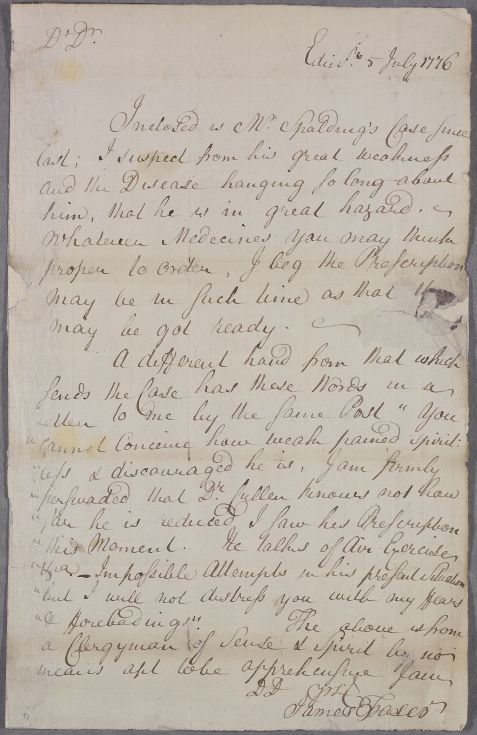 Dr Dr.
Edinr. 5 July 1776
Inclosed is Mr. Spalding's Case since
last; I suspect from his great weakness
and the Disease hanging so long about
him, that he is in great hazard.
Whatever Medecines you may think
proper to order, I beg the Prescription
may be in such time as that
may be got ready.
A different hand from that which
sends the Case has these Words in a
Letter to me by the same Post "You
"cannot Conceive how weak pained spirit:
"less & discouraged he is, I am firmly
"perswaded that Dr. Cullen knows not how
"far he is reduced, I saw his Prescription
"this Moment. He talks of Air Exercise
"&ca - Impossible Attempts in his present Situation
"but I will not distress you with my fears
"& forebodings". The above is from
a Clergyman of Sense & Spirit by no
means apt to be apprehensive I am
DD Yrs
James Fraser